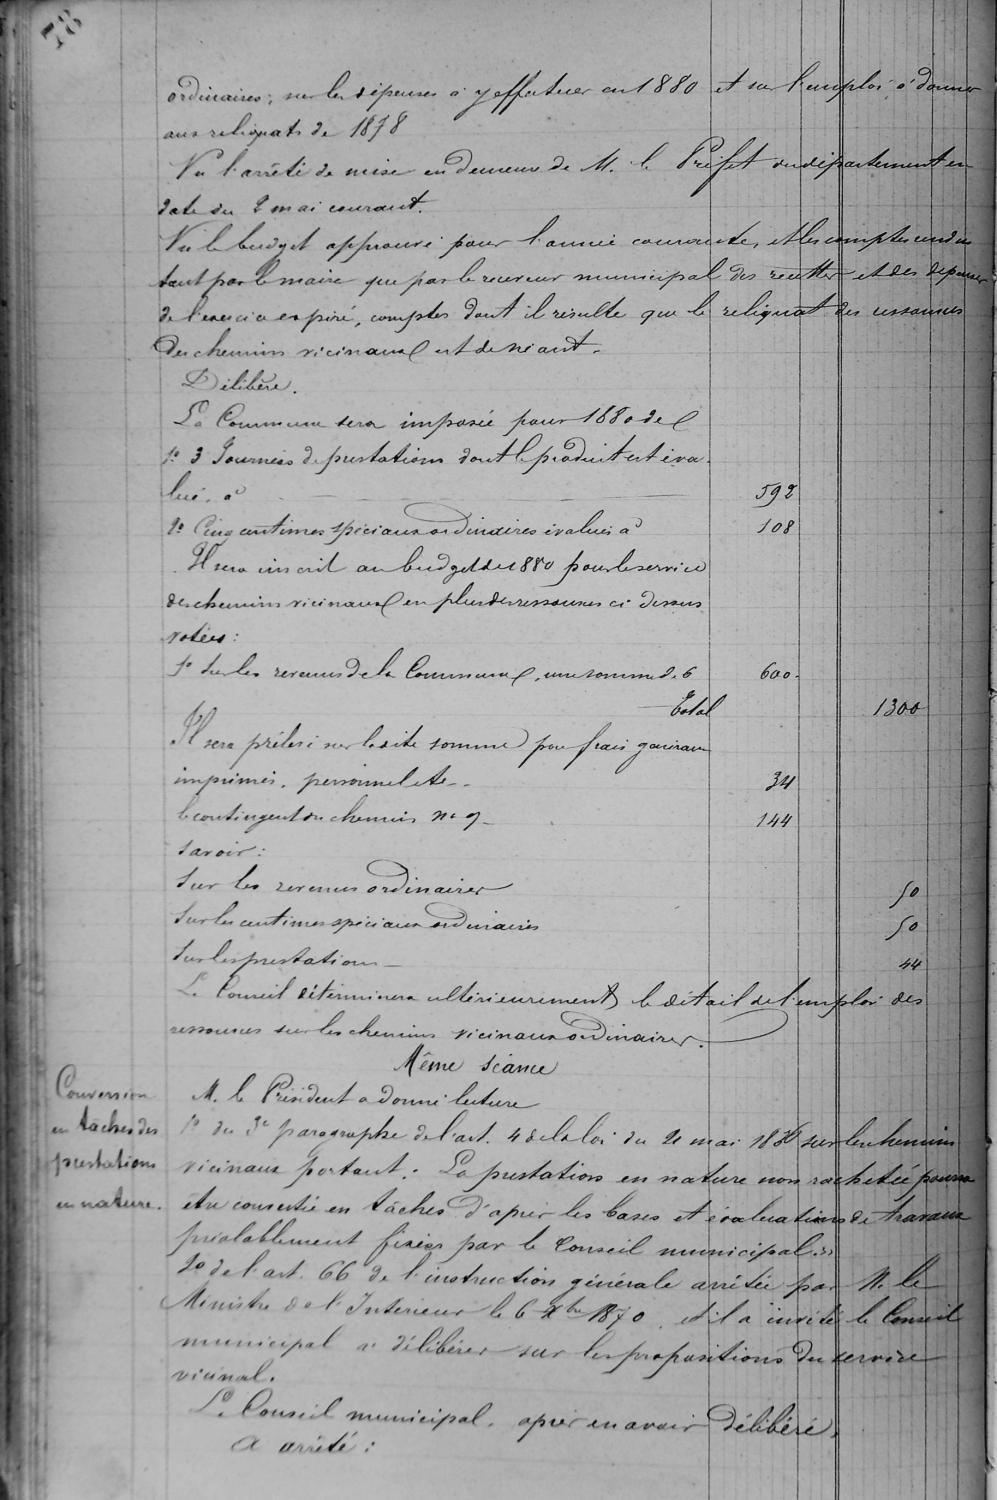 78
ordinaires; sur les dépenses à y effectuer en 1880 et sur l'emploi à donner
aux reliquats de 1878
Vu l'arrêté de mise en demeure de M. le Préfet du département en
date du 2 mai courant.
Vu le budget approuvé pour l'année courante, et les comptes rendus
tant par le maire que par le receveur municipal des recettes et des dépenses
de l'exercice expiré, comptes dont il résulte que le reliquat des ressources
des chemins vicinaux est de néant.
Délibère.
La Commune sera imposée pour 1880 de
1º 3 Journées de prestations dont le produit est éva-
lué à 592
2º Cinq centimes spéciaux ordinaires évalués à 108
Il sera inscrit au budget de 1880 pour le service
des chemins vicinaux en plus des ressources ci dessus
votées:
1º Sur les revenus de la Commune, une somme de 600.
Total 1300
Il sera prélevé sur la dite somme pour frais généraux
imprimés, personnel etc.. 34
le contingent du chemin nº 9 144
savoir:
Sur les revenus ordinaires 50
Sur les centimes spéciaux ordinaires 50
Sur les prestations 44
Le Conseil déterminera ultérieurement le détail de l'emploi des
ressources sur les chemins vicinaux ordinaires.
Même séance
Conversion
en tâches des
prestations
en nature.
M. le Président a donné lecture
1º du 3e paragraphe de l'art. 4 de la loi du 21 mai 1836 sur les chemins
vicinaux portant: La prestation en nature non rachetée pourra
être convertie en tâches d'après les bases et évaluations de travaux
préalablement fixées par le Conseil municipal.»
2º de l'art. 66 de l'instruction générale arrêtée par M. le
Ministre de l'Intérieur le 6 Xbre 1870, et il a invité le Conseil
municipal à délibérer sur les propositions du service
vicinal.
Le Conseil municipal, après en avoir délibéré,
a arrêté: